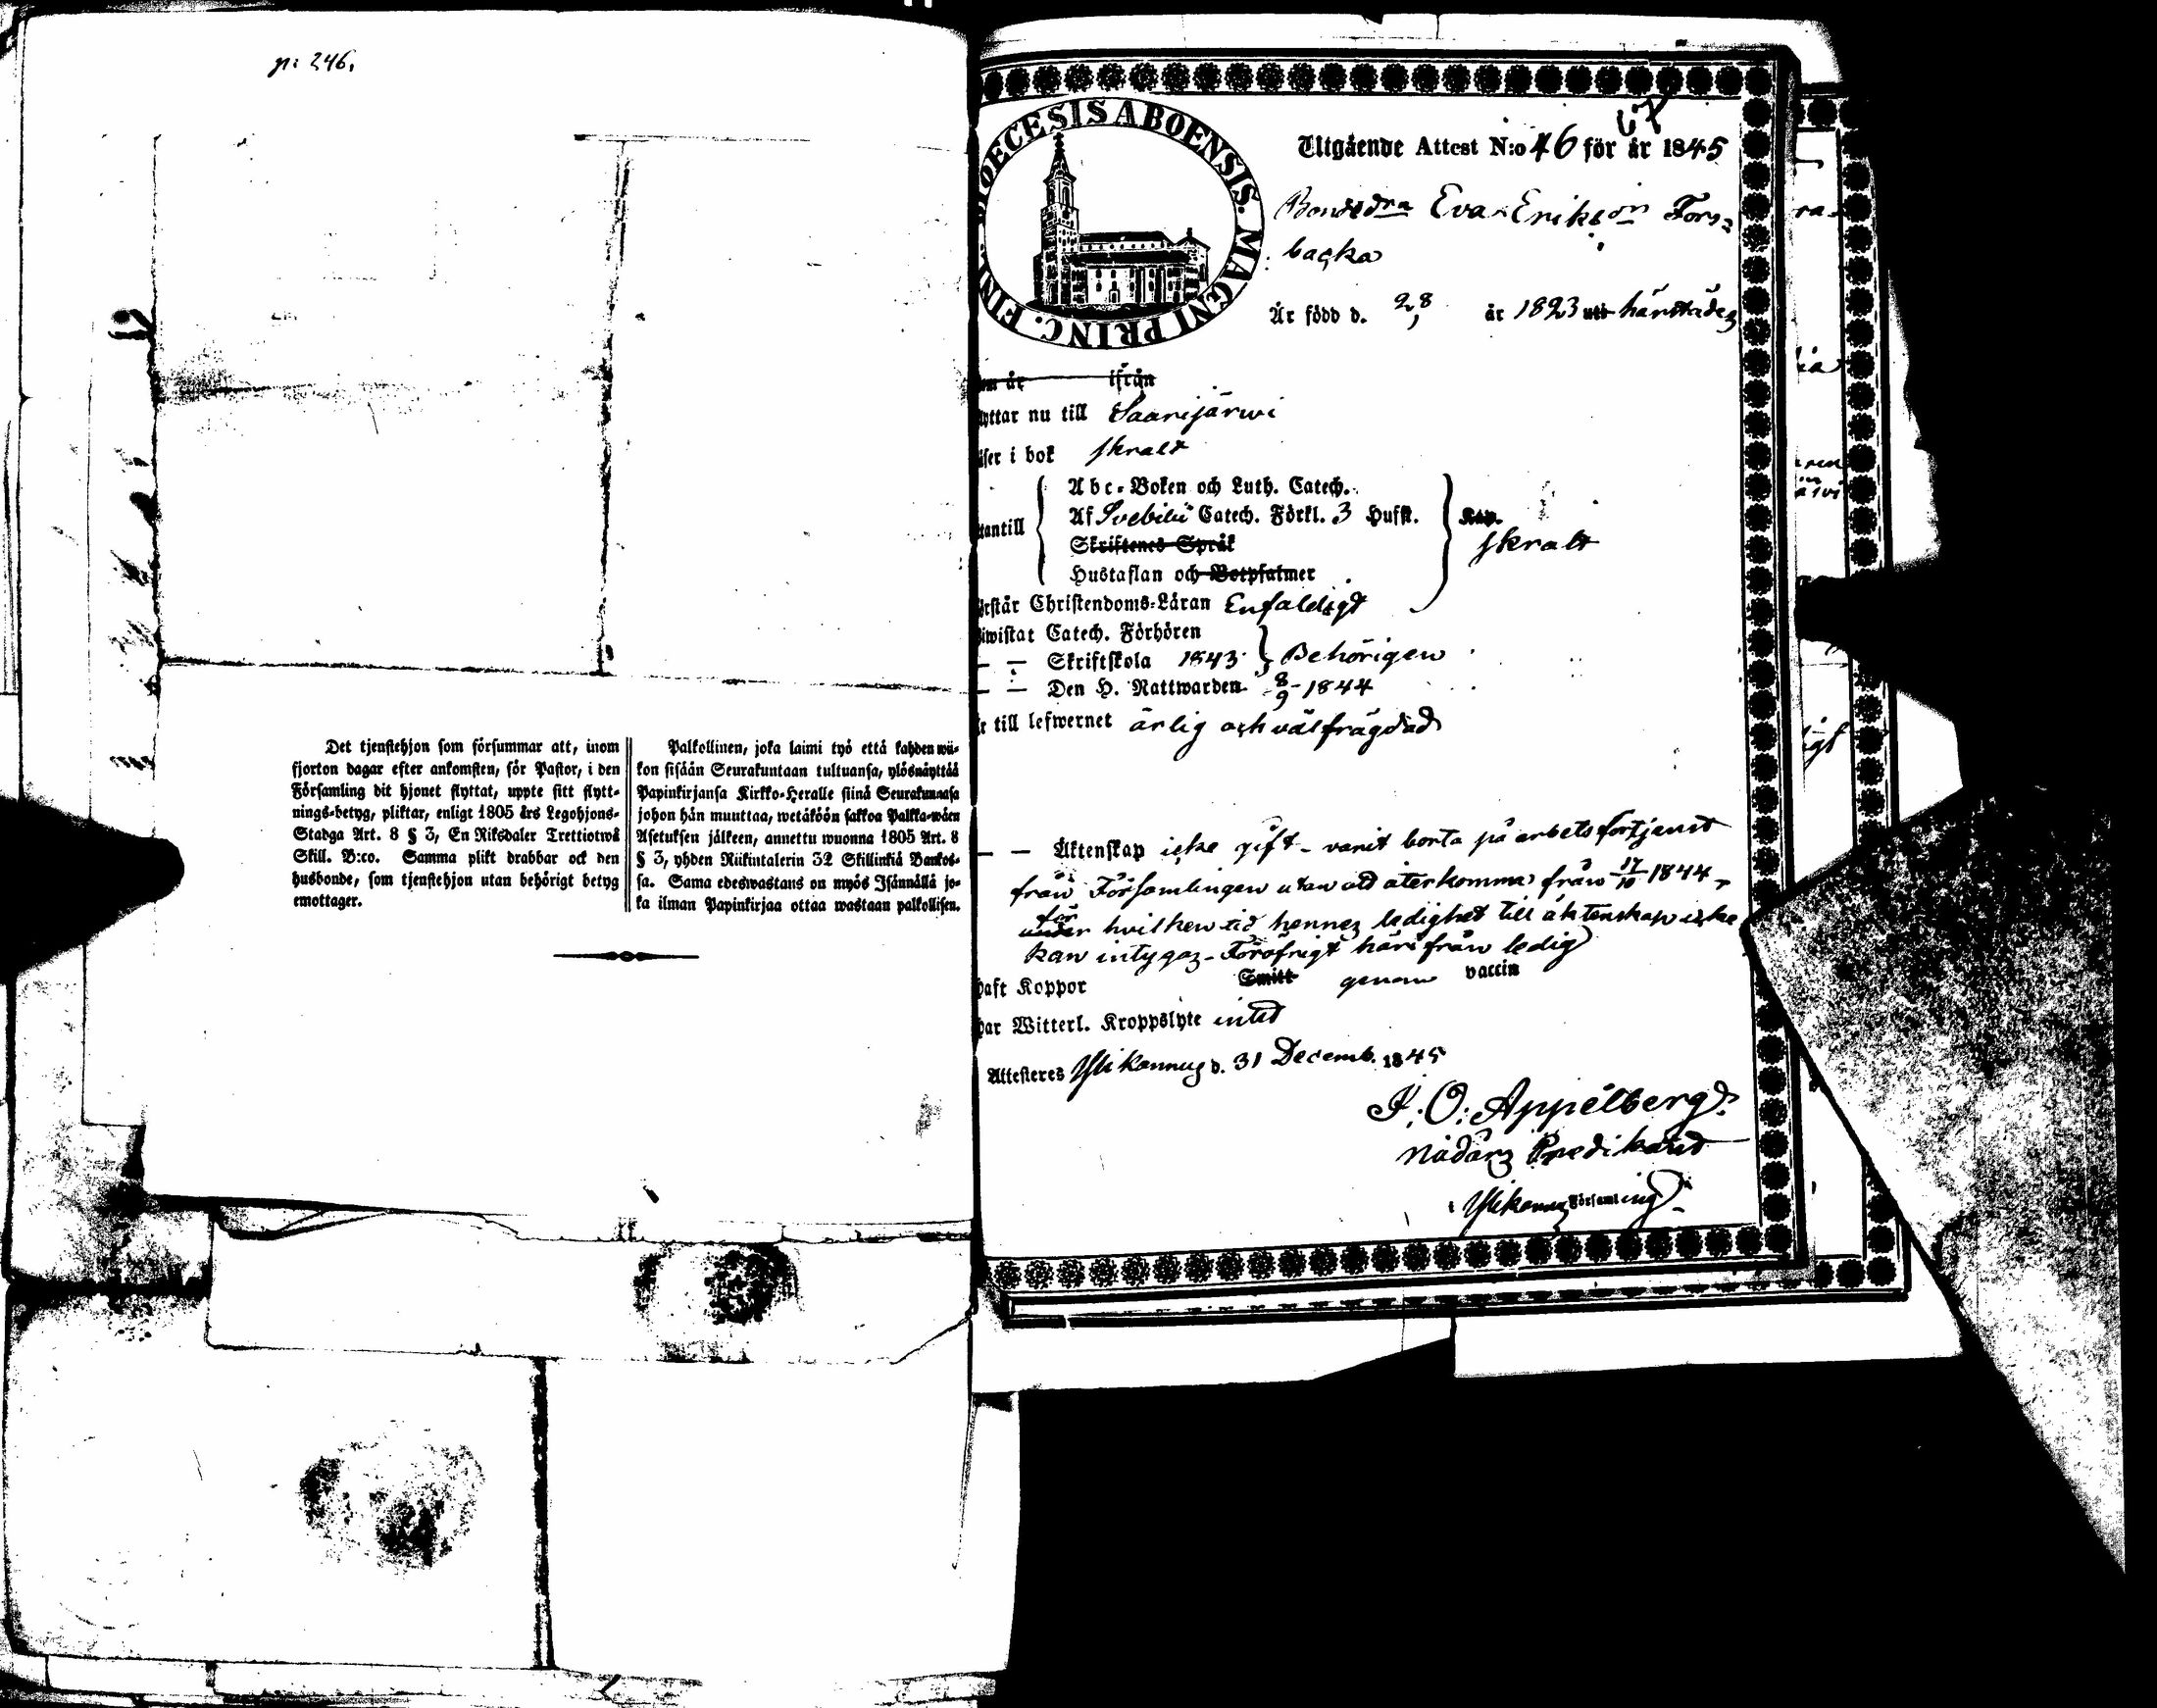 p: 246.
Det tjenstehjon som försummar att, inom
fjorton dagar efter ankomsten, för Pastor, i den
Församling dit hjonet flyttat, uppte sitt flytt-
nings-betyg, pliktar, enligt 1805 års Legohjons-
Stadga Art. 8 § 3, En Riksdaler Trettiotwå
Skill. B:co. Samma plikt drabbar ock den
husbonde, som tjenstehjon utan behörigt betyg
emottager.
Palkollinen, joka laimi työ että kahden wii-
kon sisään Seurakuntaan tultuansa, ylösnäyttää
Papinkirjansa Kirkko-Herralle siinä Seurakunnasa
johon hän muuttaa, wetäköön sakkoa Palkka-wäen
Asetuksen jälkeen, annettu wuonna 1805 Art. 8
§ 3, yhden Riikintalerin 32 Skillinkiä Bankos-
sa. Sama edeswastaus on myös Isännällä jo-
ka ilman Papinkirjaa ottaa wastaan palkollisen.
DIOECESIS ABOENSIS. MAGNI PRINC. FINL.
67
Utgående Attest N:o 46 för år 1845
Bondedra Eva Eriksdr Fors-
backa
År född d. 28 år 1823 uti härstädes
om år ifrån
yttar nu till Saarijärwi
äser i bok skralt
Abc-Boken och Luth. Catech.
utantill Af Svebilii Catech. Förkl. 3 Hufst. Kap.
Skriftenes Språk skralt
Hustaflan och Botpsalmer
örstår Christendoms-Läran Enfaldigt
iwistat Catech. Förhören
— — Skriftskola 1843 Behörigen
— — Den H. Nattwarden 8/9 1844
r till lefwernet ärlig och välfrägdad
— — Äktenskap icke gift - varit borta på arbetsförtjenst
från Församlingen utan att återkomma från 17/10 1844,
för
under hvilken tid hennes ledighet till äktenskap icke
kan intygas - Föröfrigt härifrån ledig
haft Koppor Smitt genom vaccin
har Witterl. Kroppslyte intet
Attesteres Ylikannus d. 31 Decemb. 1845
J. O. Appelberg
Nådårs Predikant
i Ylikannus Församling